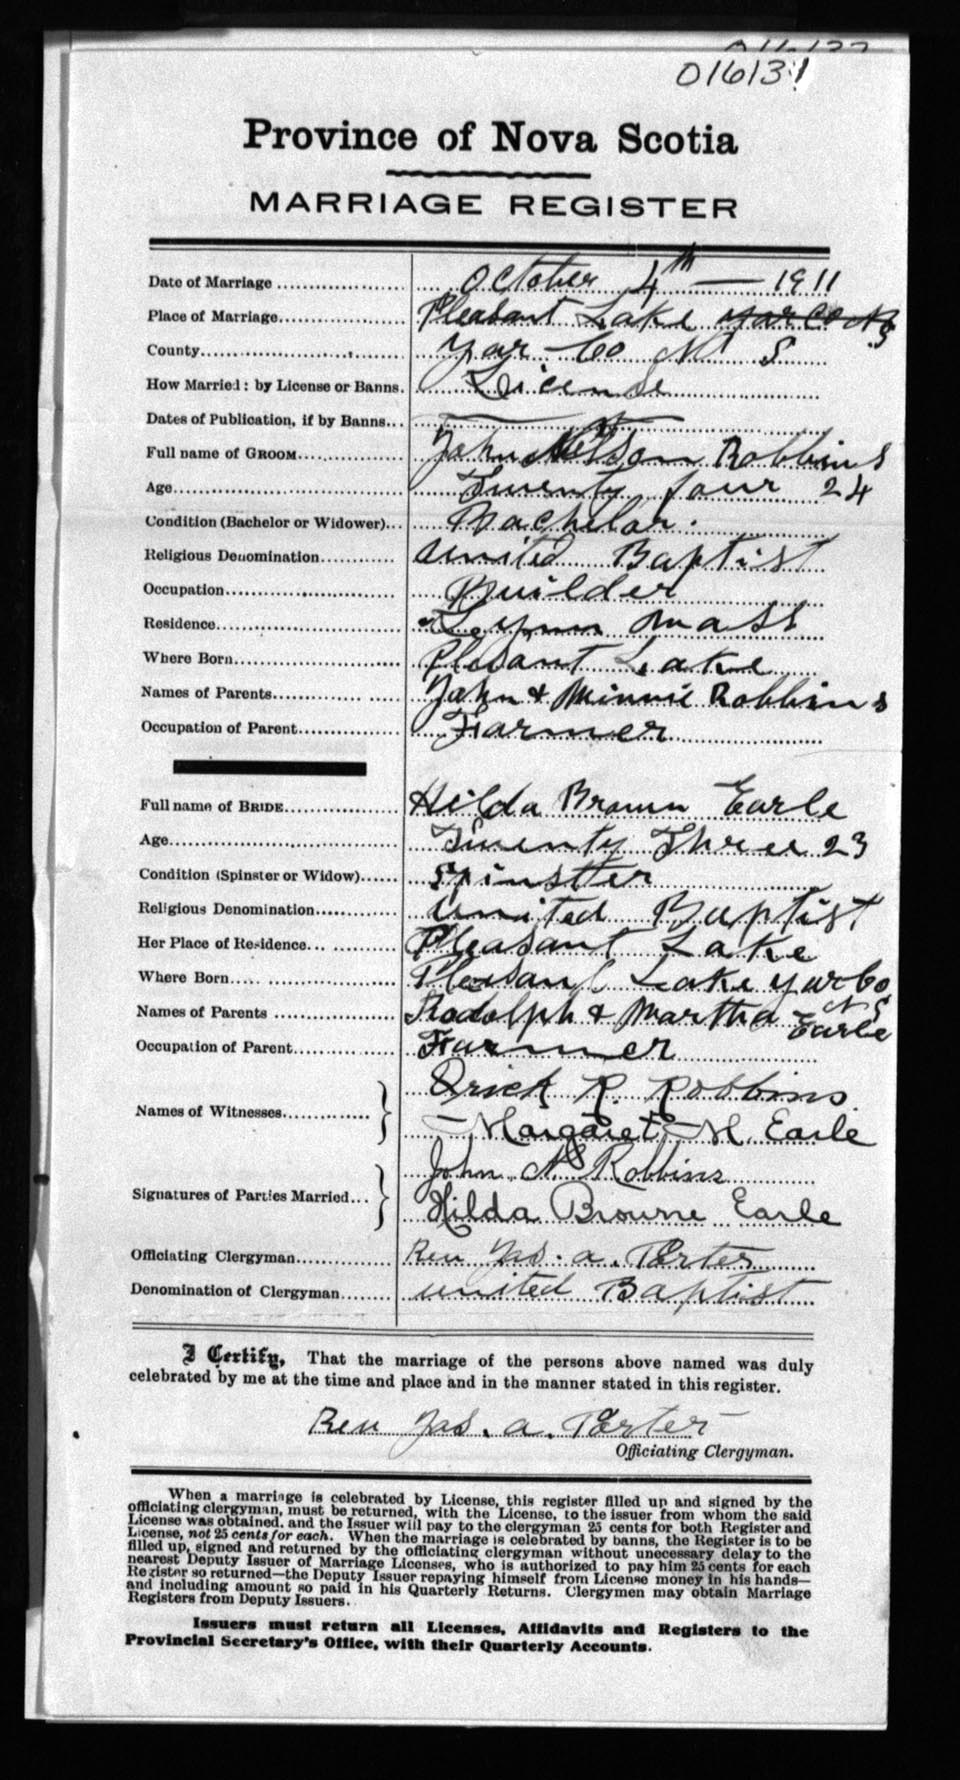 01613
Province of Nova Scotia
MARRIAGE REGISTER
Date of Marriage October 4th — 1911
Place of Marriage Pleasant Lake Yar Co N S
County Yar Co N S
How Married: by License or Banns. License
Dates of Publication, if by Banns
Full name of GROOM John Nelson Robbins
Age Twenty four 24
Condition (Bachelor or Widower) Bachelor.
Religious Denomination United Baptist
Occupation Builder
Residence Lynn Mass
Where Born Plesant Lake
Names of Parents John & Minnie Robbins
Occupation of Parent Farmer
Full name of BRIDE Hilda Brown Earle
Age Twenty Three 23
Condition (Spinster or Widow) Spinstter
Religious Denomination United Baptist
Her Place of Residence Pleasant Lake
Where Born Plesant Lake Yar Co N S
Names of Parents Rodolph & Martha Earle
Occupation of Parent Farmer
Names of Witnesses R. Robbins
Margaret M. Earle
Signatures of Parties Married John N. Robbins
Hilda Browne Earle
Officiating Clergyman Rev Jas. A. Porter
Denomination of Clergyman United Baptist
I Certify, That the marriage of the persons above named was duly
celebrated by me at the time and place and in the manner stated in this register.
Rev Jas. A. Porter
Officiating Clergyman.
When a marriage is celebrated by License, this register filled up and signed by the
officiating clergyman, must be returned, with the License, to the issuer from whom the said
License was obtained, and the Issuer will pay to the clergyman 25 cents for both Register and
License, not 25 cents for each. When the marriage is celebrated by banns, the Register is to be
filled up, signed and returned by the officiating clergyman without unnecessary delay to the
nearest Deputy Issuer of Marriage Licenses, who is authorized to pay him 25 cents for each
Register so returned—the Deputy Issuer repaying himself from License money in his hands—
and including amount so paid in his Quarterly Returns. Clergymen may obtain Marriage
Registers from Deputy Issuers.
Issuers must return all Licenses, Affidavits and Registers to the
Provincial Secretary's Office, with their Quarterly Accounts.